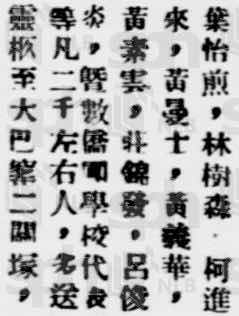 葉怡煎，林樹森，柯進
來，黃曼士，黃義華，
黃素雲，莊錦發，呂俊
炎，曁數僑團學校代表
等凡二千左右人，名送
靈柩至大巴窰二閘塚，